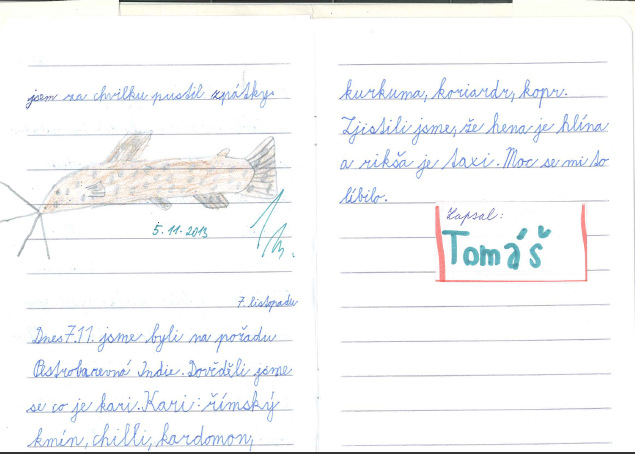 jsem za chvilku pustil zpátky.
5.11.2013
7. listopadu
Dnes 7.11. jsme byli na pořadu
Pestrobarevná Indie. Dověděli jsme
se co je kari. Kari: římský
kmín, chilli, kardomon,
kurkuma, koriardr, kopr.
Zjistili jsme, že hena je hlína
a rikša je taxi. Moc se mi to
líbilo.
Zapsal:
Tomáš